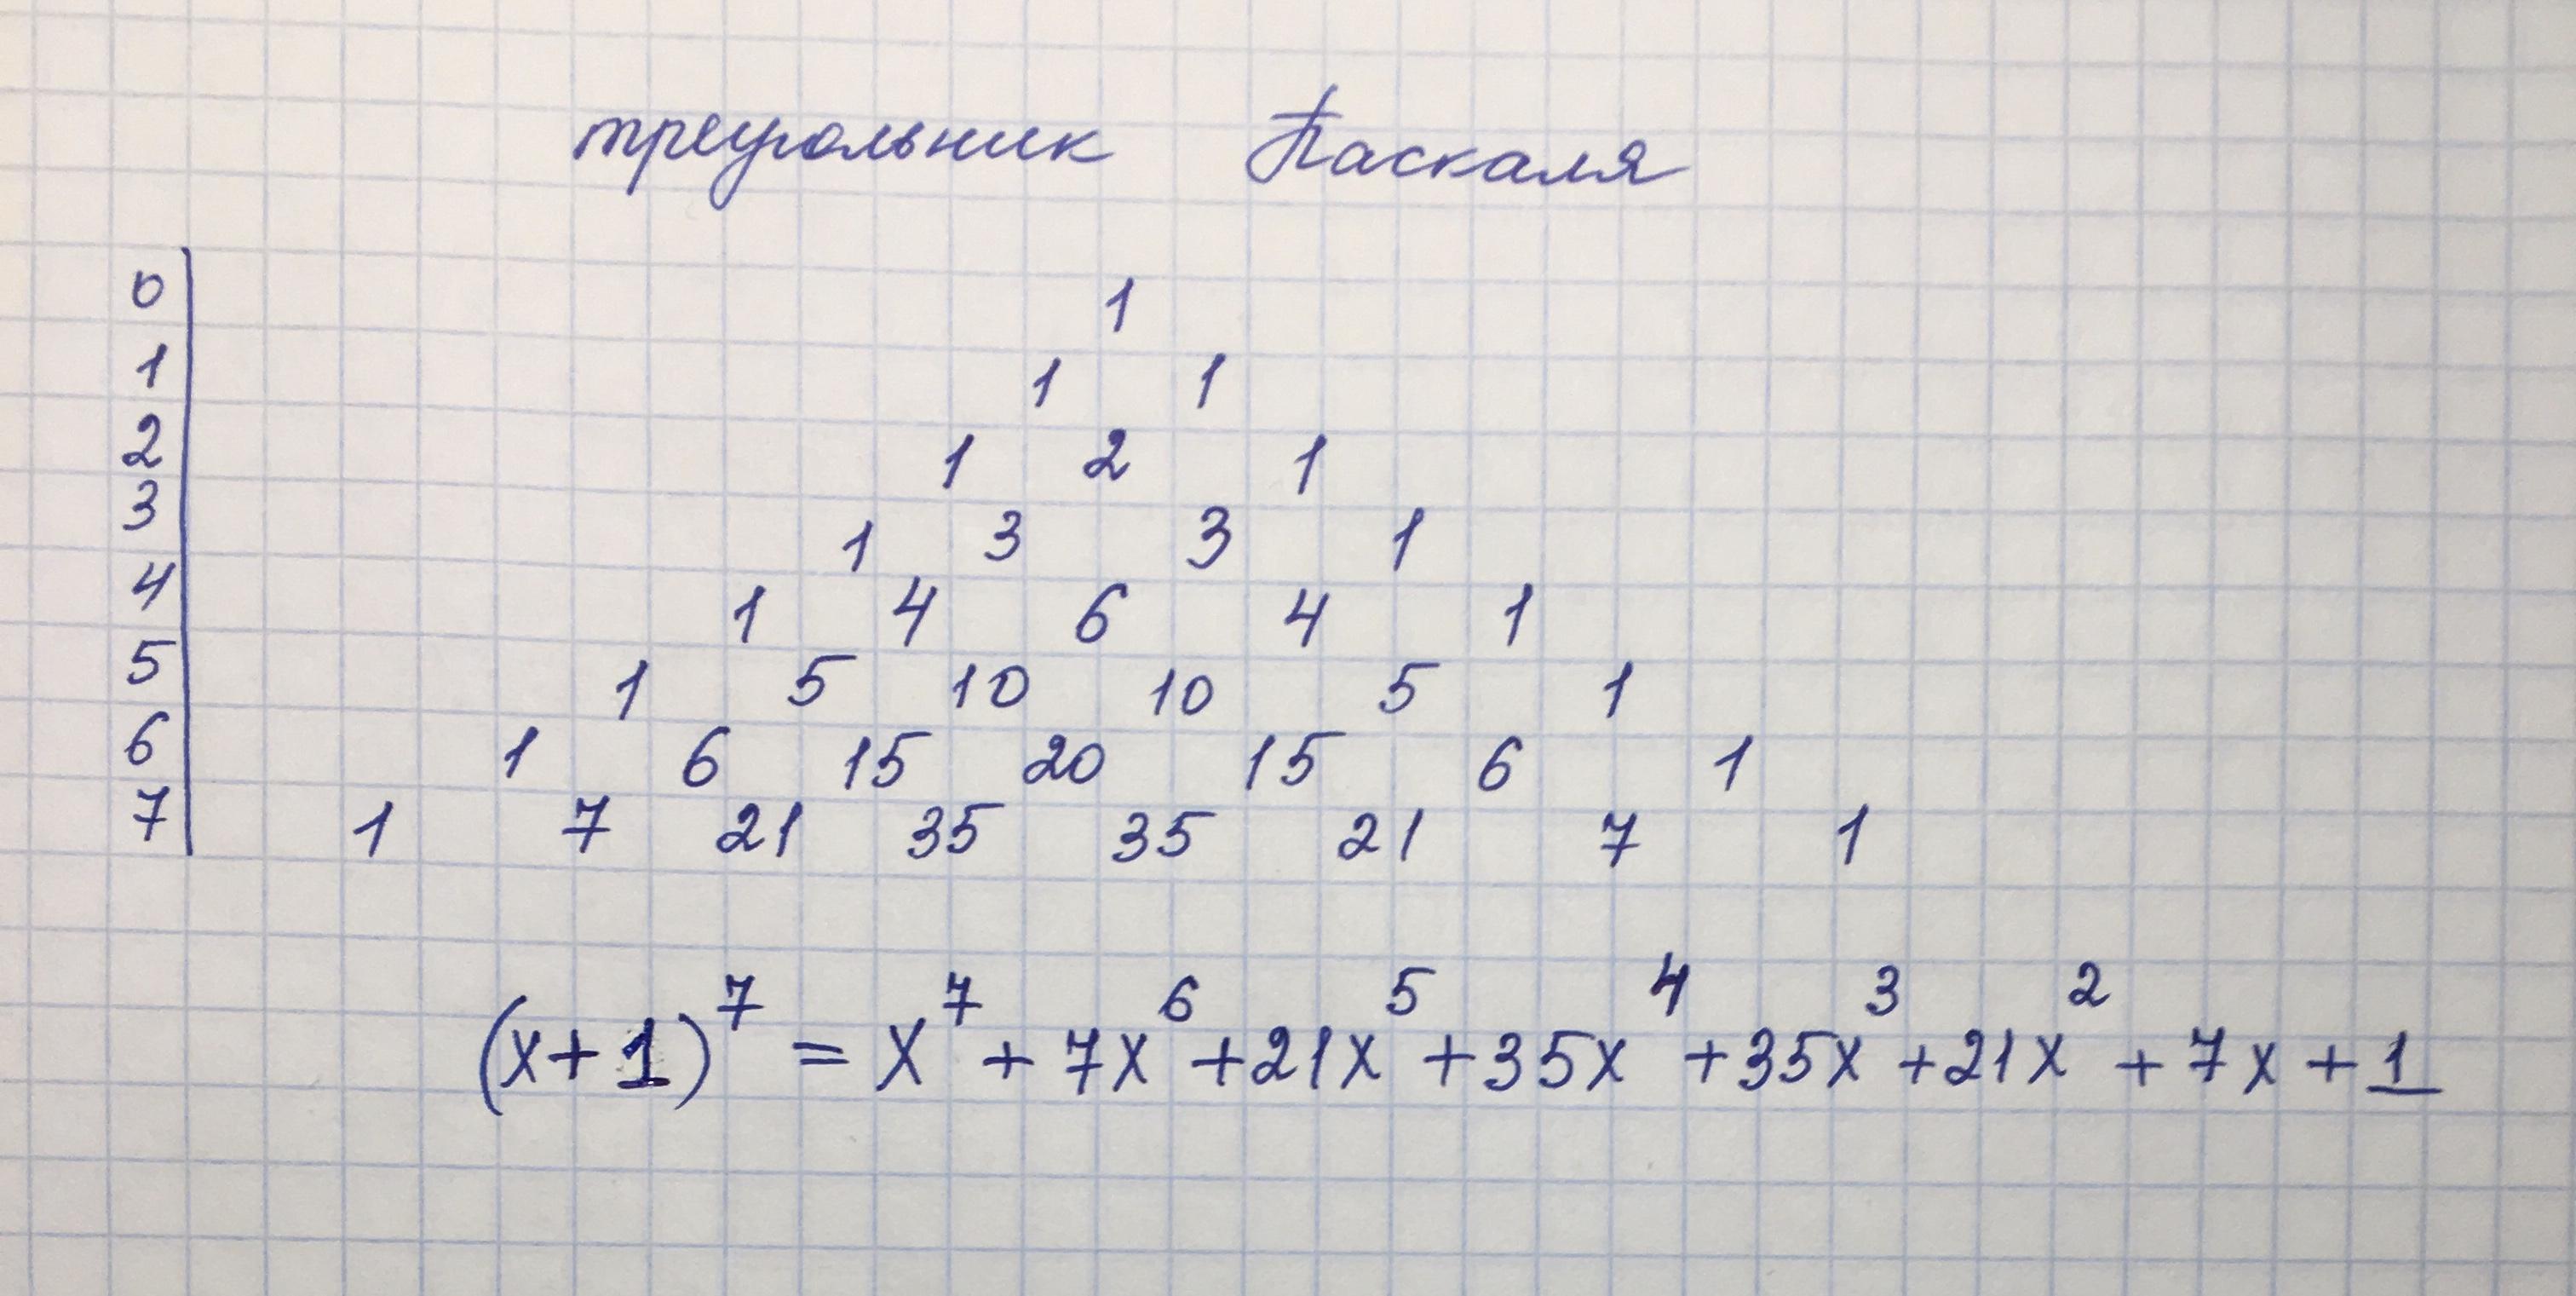 треугольник Паскаля
0 1
1 1 1
2 1 2 1
3 1 3 3 1
4 1 4 6 4 1
5 1 5 10 10 5 1
6 1 6 15 20 15 6 1
7 1 7 21 35 35 21 7 1
(x+1)⁷ = x⁷ + 7x⁶ + 21x⁵ + 35x⁴ + 35x³ + 21x² + 7x + 1